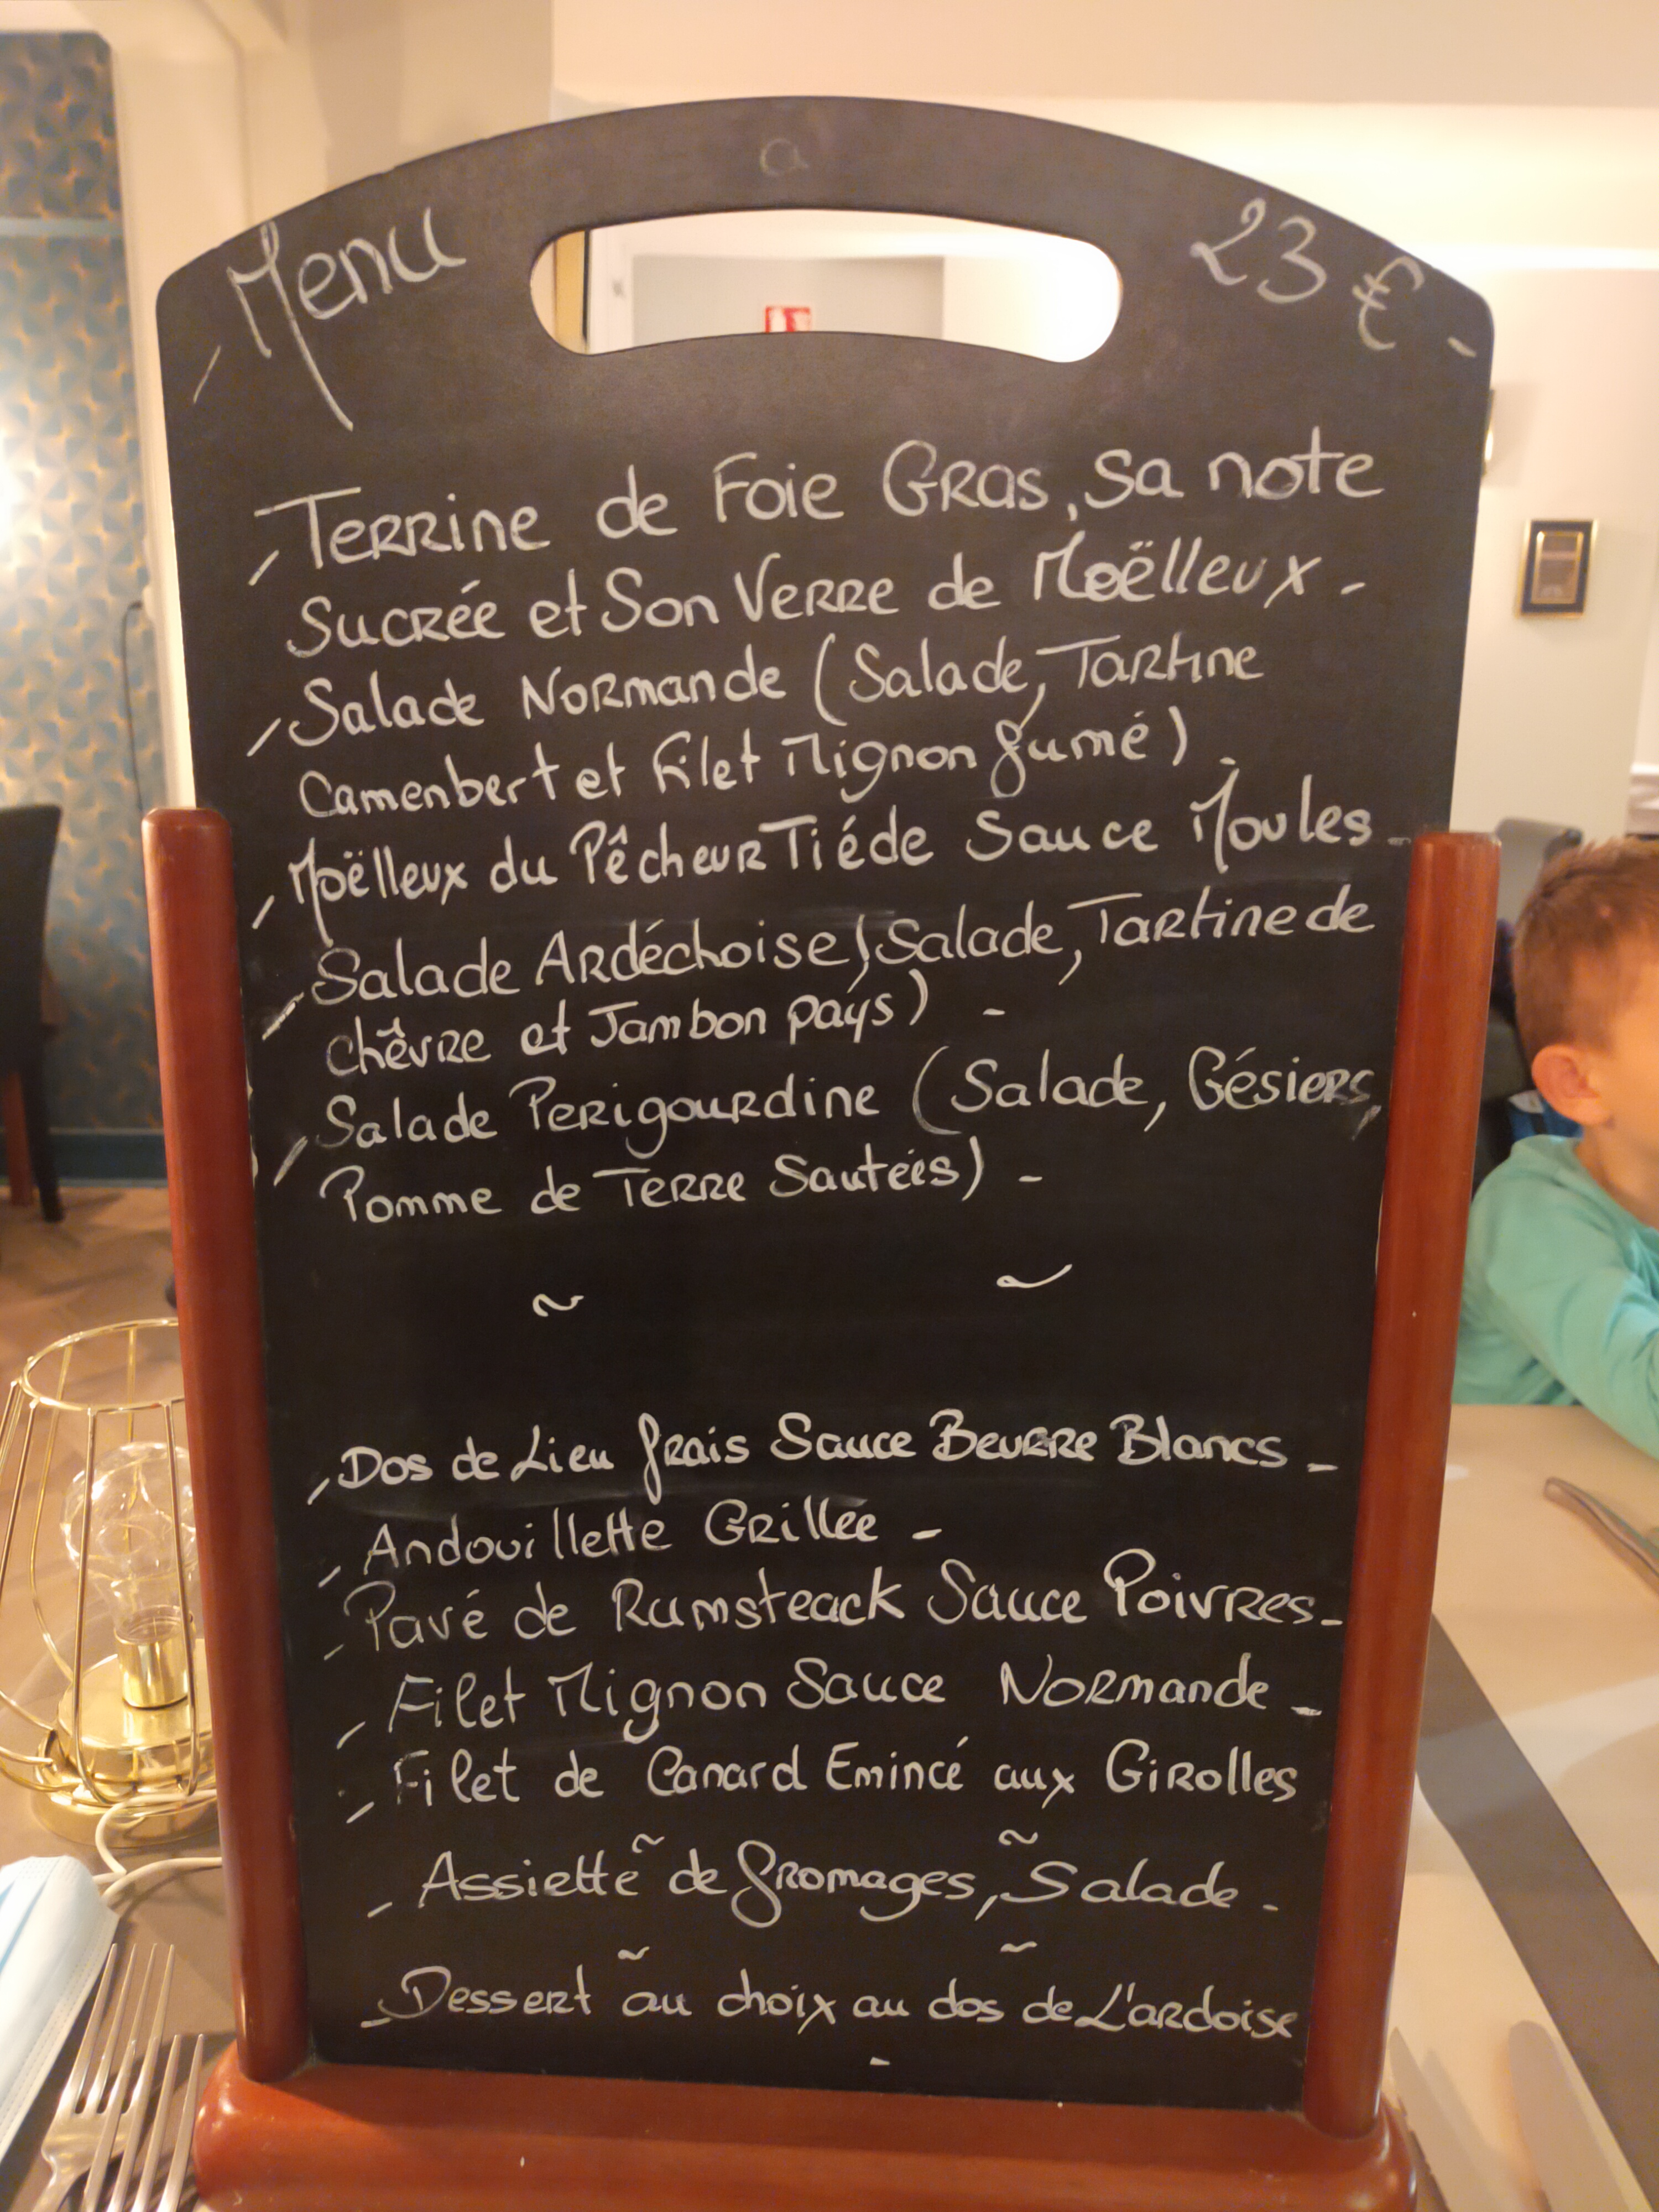 - Menu 23 € -
- Terrine de Foie Gras, Sa note
Sucrée et Son Verre de Moëlleux -
- Salade Normande (Salade, Tartine
Camenbert et Filet Mignon fumé) -
- Moëlleux du Pêcheur Tiéde Sauce Moules -
- Salade Ardéchoise (Salade, Tartine de
chêvre et Jambon pays) -
- Salade Perigourdine (Salade, Gésiers,
Pomme de Terre Sautéés) -
~ ~
- Dos de Lieu frais Sauce Beurre Blancs -
- Andouillette Grillée -
- Pavé de Rumsteack Sauce Poivres -
- Filet Mignon Sauce Normande -
- Filet de Canard Emincé aux Girolles
~ ~
- Assiette de fromages, Salade -
~ ~
- Dessert au choix au dos de L'ardoise
-